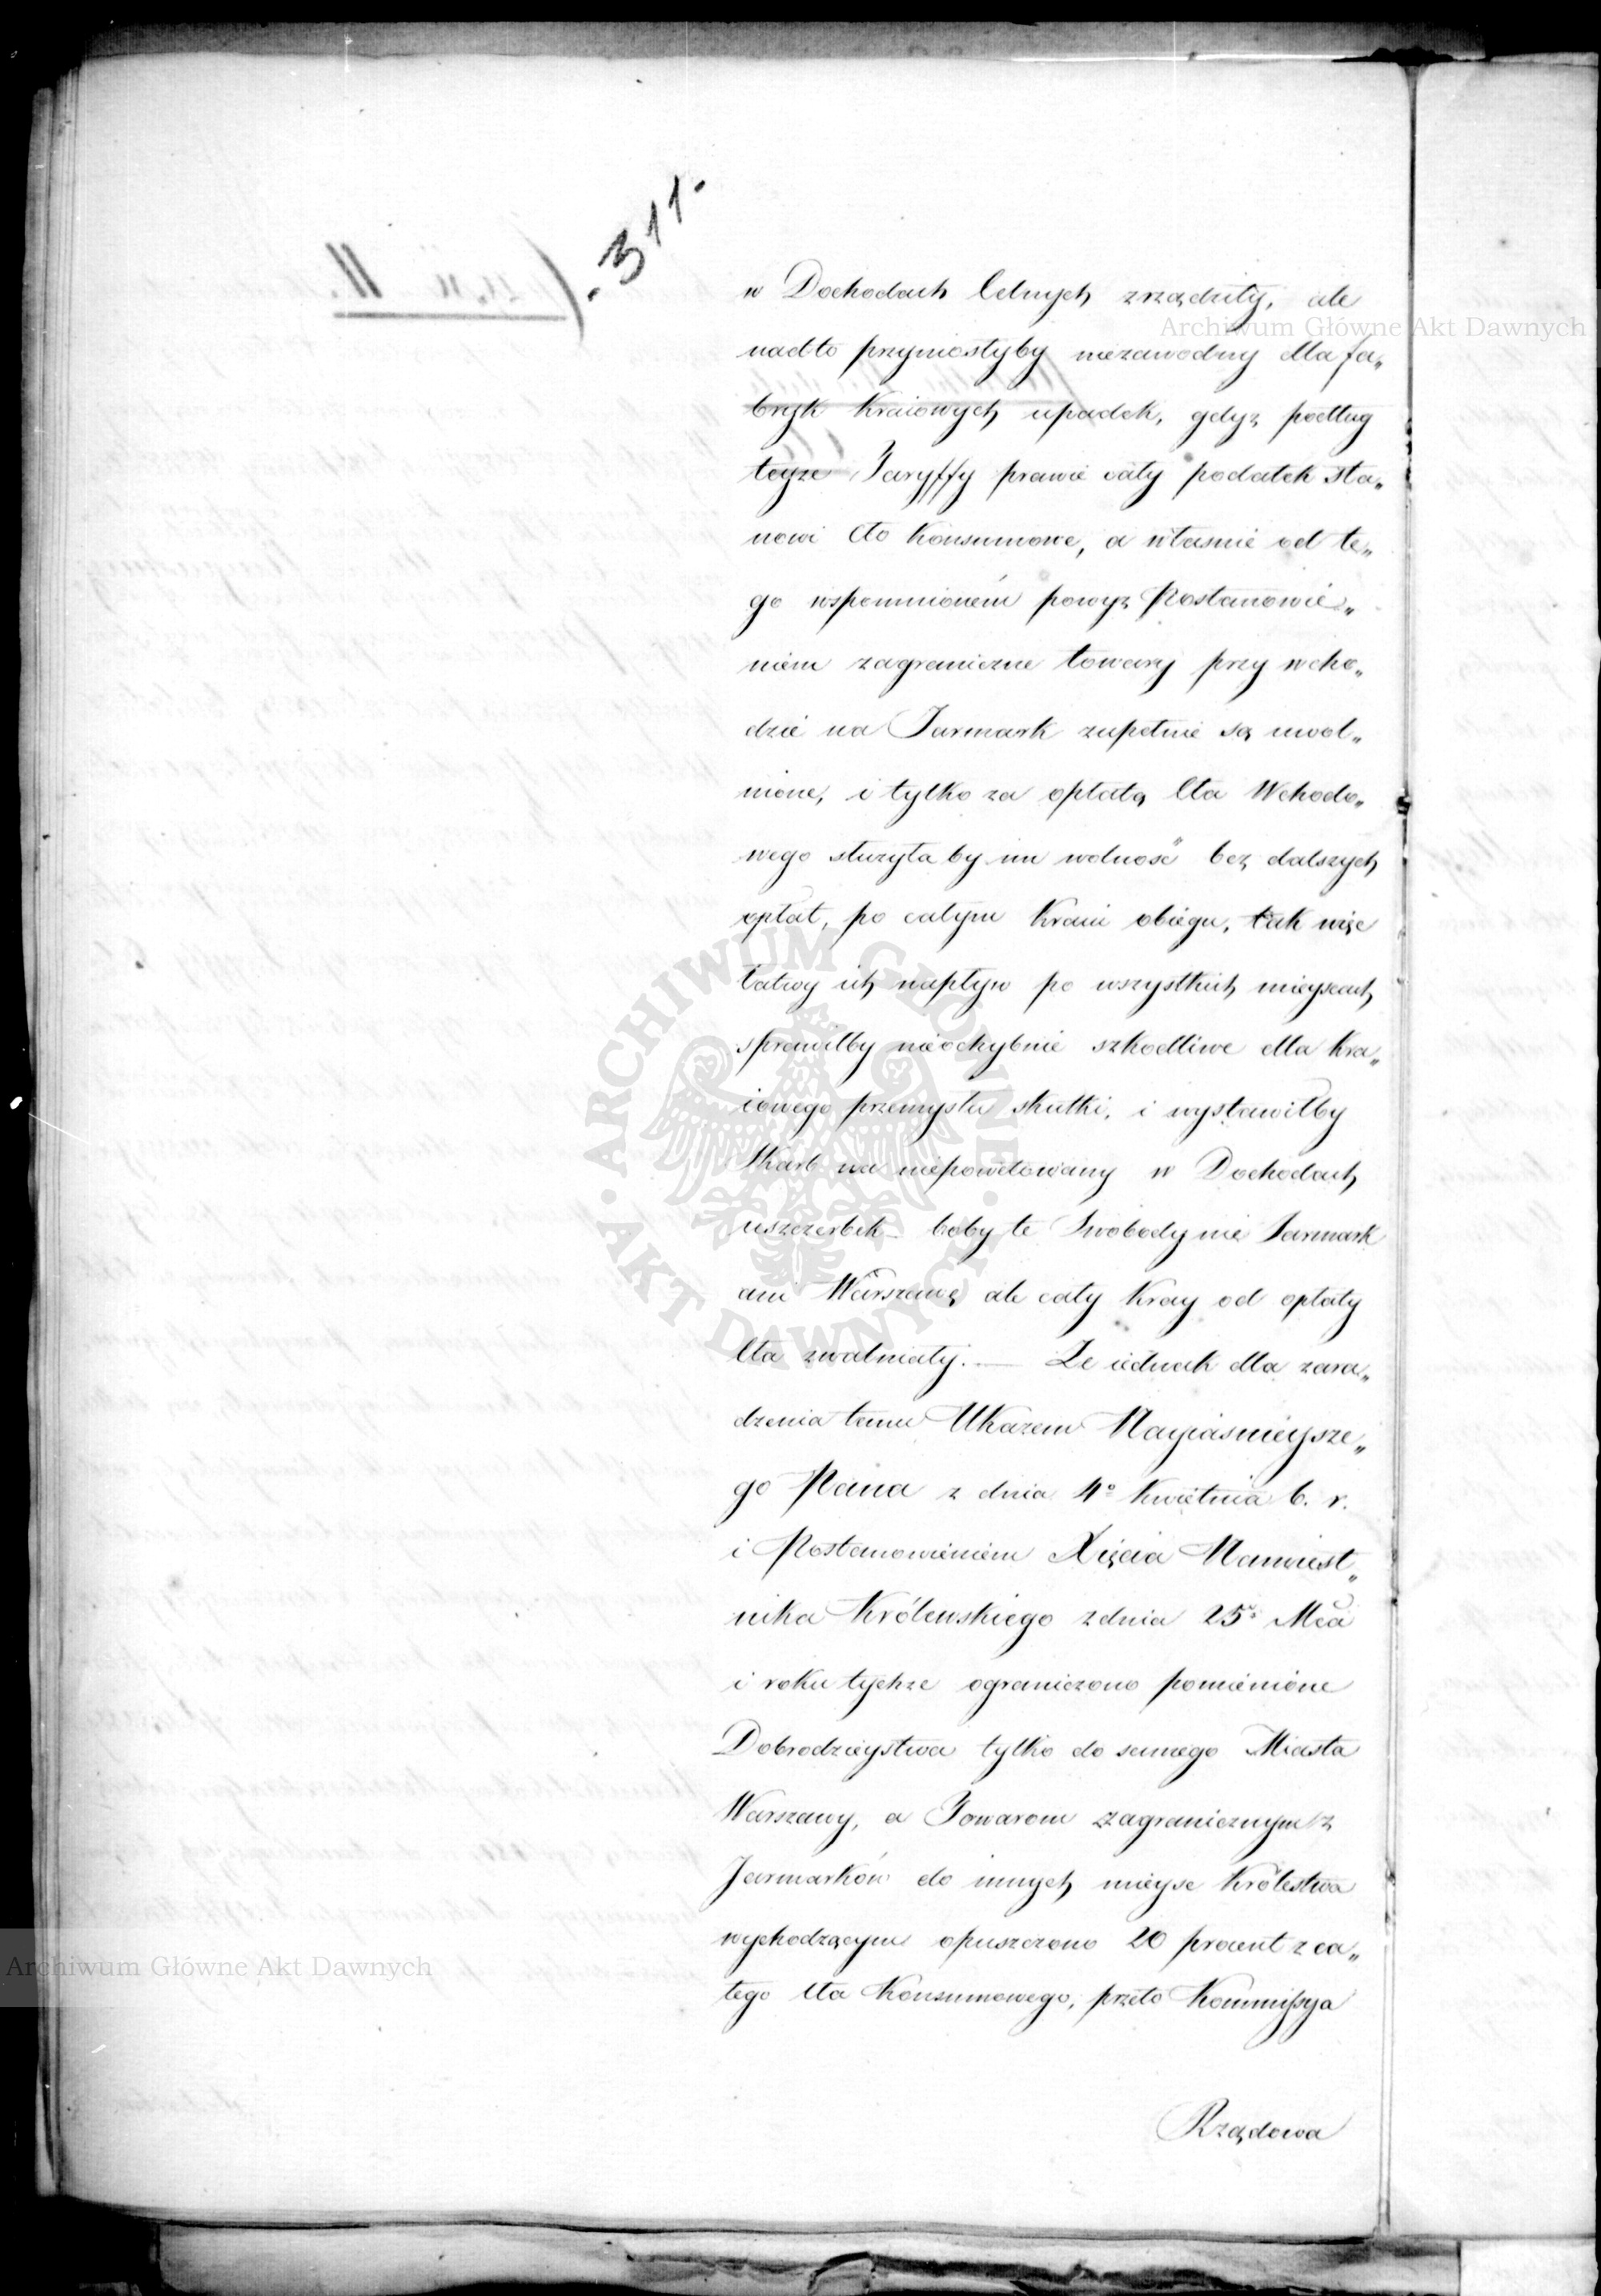 .311.
w Dochodach Celnych zrządziły, ale
nadto przyniosłyby niezawodny dla fa„
bryk Kraiowych upadek, gdyż podług
teyże Taryffy prawie cały podatek sta„
nowi Cło Konsumowe, a właśnie od te„
go wspomnioném powyż Postanowie„
niem zagraniczne towary przy wcho„
dzie na Jarmark zupełnie są uwol„
nione, i tylko za opłatą Cła Wchodo„
wego służyłaby im wolność bez dalszych
opłat, po całym Kraiu obiegu, tak więc
łatwy ich napływ po wszystkich mieyscach
sprawiłby nieochybnie szkodliwe dla kra„
iowego przemysłu skutki, i wystawiłby
Skarb na niepowetowany w Dochodach
uszczerbek boby te Swobody nie Jarmark
ani Warszawę ale cały Kray od opłaty
Cła zwalniały. — Że iednak dla zara„
dzenia temu Ukazem Nayiaśnieysze„
go Pana z dnia 4º Kwietnia b. r.
i Postanowieniem Xięcia Namiest„
nika Królewskiego z dnia 25º Mca
i roku tychże ograniczono pomienione
Dobrodzieystwa tylko do samego Miasta
Warszawy, a Towarom zagranicznym z
Jarmarków do innych mieysc Królestwa
wychodzącym opuszczono 20 procent z ca„
łego Cła Konsumowego, przeto Kommissya
Rządowa
Archiwum Główne Akt Dawnych
ARCHIWUM GŁÓWNE AKT DAWNYCH
Archiwum Główne Akt Dawnych